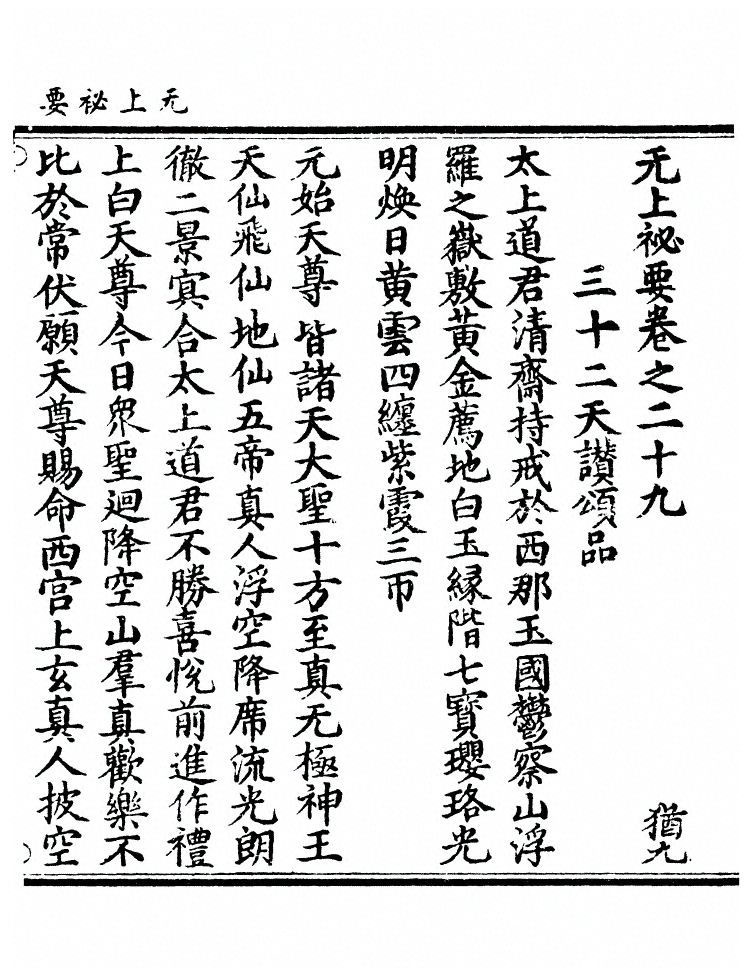 无上祕要
无上祕要卷之二十九
猶九
三十二天讃頌品
太上道君清齋持戒於西那玉國鬱察山浮
羅之嶽敷黃金薦地白玉縁階七寶瓔珞光
明煥日黃雲四纏紫霞三帀
元始天尊皆諸天大聖十方至真无極神王
天仙飛仙地仙五帝真人浮空降席流光朗
徹二景㝠合太上道君不勝喜悅前進作禮
上白天尊今日衆聖迴降空山羣真歡樂不
比於常伏願天尊賜命西宮上玄真人披空